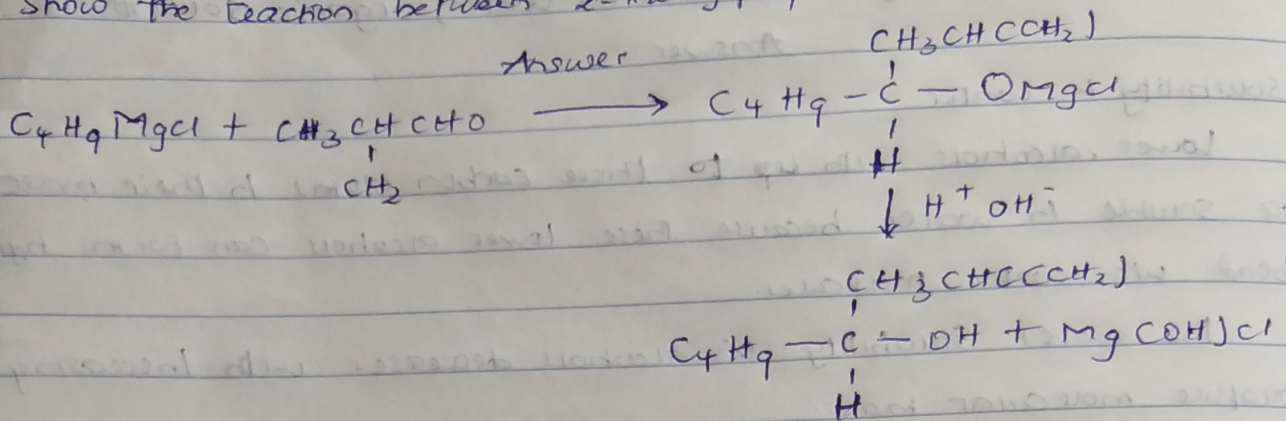 Show the reaction between
Answer
C4H9MgCl + CH3CHCHO → C4H9 - C - OMgCl
CH2
CH3CHCCH2)
H
↓ H+ OH-
CH3CHCCCH2)
C4H9 - C - OH + MgCOH)Cl
H